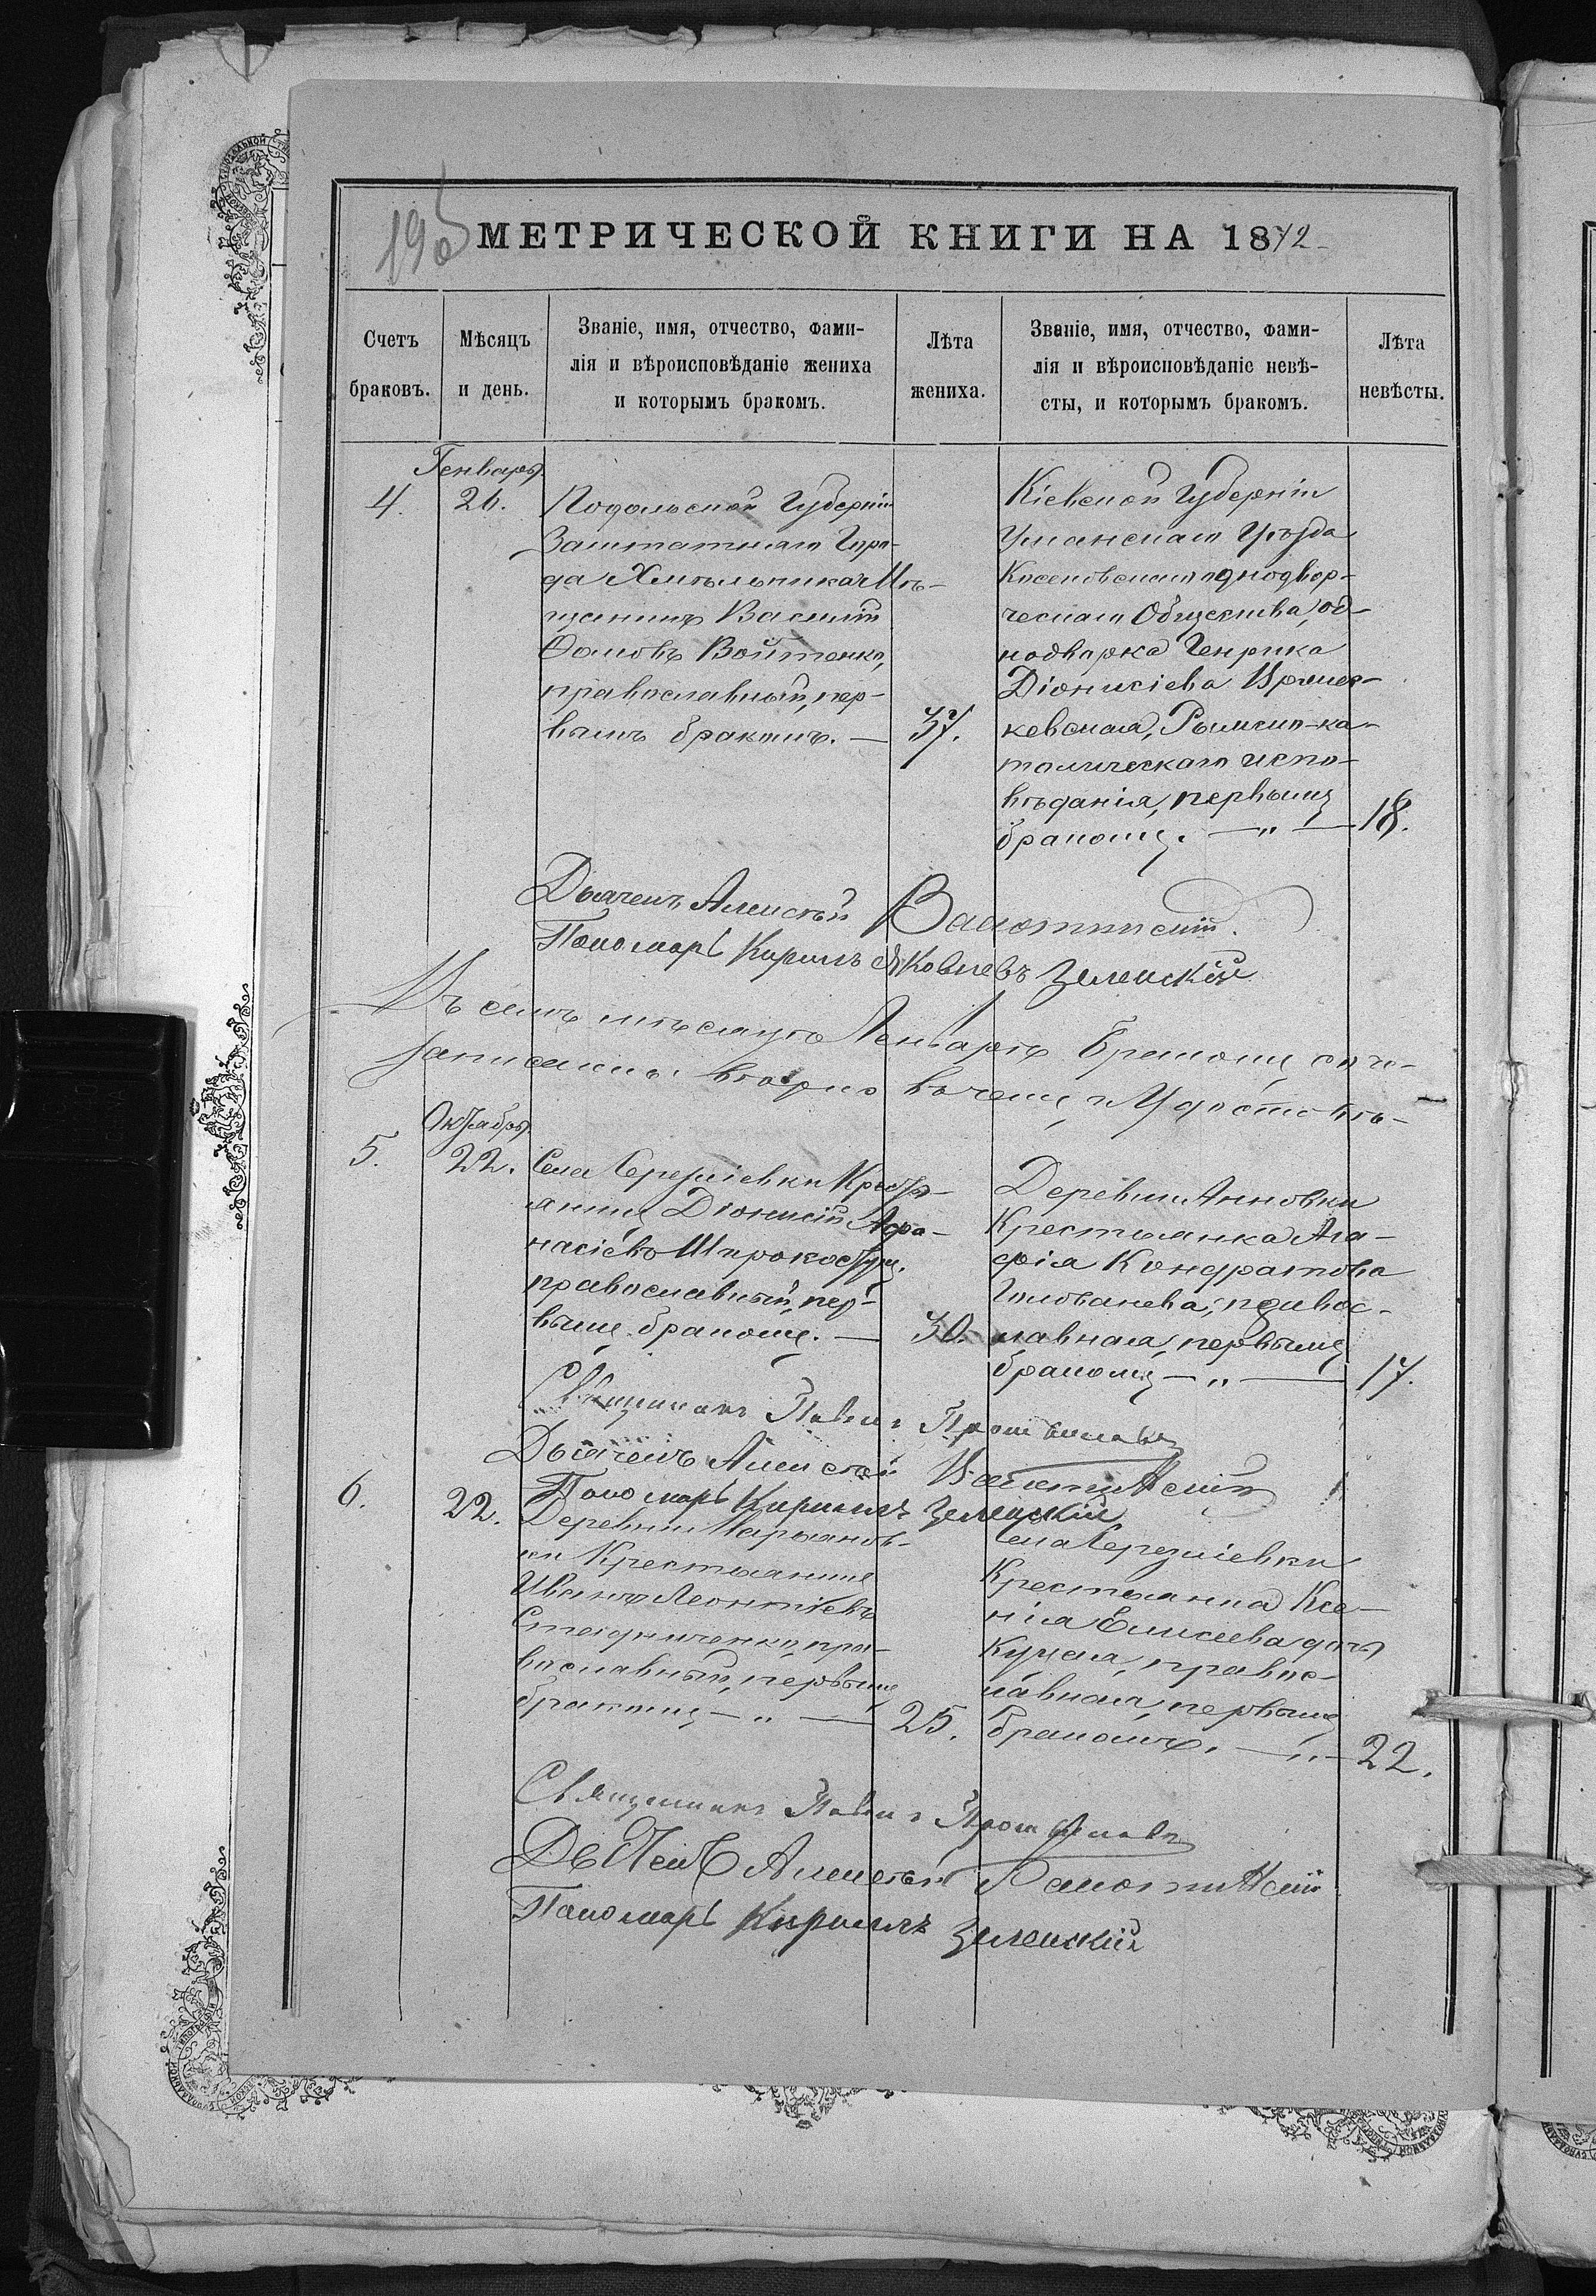 195
МЕТРИЧЕСКОЙ КНИГИ НА 1872
Счетъ
браковъ.
Мѣсяцъ
и день.
Званіе, имя, отчество, фами-
лія и вѣроисповѣданіе жениха
и которымъ бракомъ.
Лѣта
жениха.
Званіе, имя, отчество, фами-
лія и вѣроисповѣданіе невѣ-
сты, и которымъ бракомъ.
Лѣта
невѣсты.
Генварь
4.
26.
Подольской Губерніи
Заштатнаго Горо-
да Хмѣльника Мѣ-
щанинъ Василій
Ѳомовъ Войтенко,
православный, пер-
вымъ бракомъ. —
37.
Кіевской Губерніи
Уманскаго Уѣзда
однодвор-
ческаго Общества, од-
нодворка Генрика
Діонисіева
Римско-ка-
толическаго испо-
вѣданія, первымъ
бракомъ. — „ —
18.
Дьячекъ Алексѣй
Пономарь Кирилъ Яковлевъ Зеленскій
Въ семъ мѣсяцѣ Генварѣ бракомъ соче-
записаны вѣрно въ чемъ и Удостовѣ-
Октябрь
5.
22.
Села Березіевки Крестья-
янинъ Діонисій Аѳа-
насіевъ
православный, пер-
вымъ бракомъ. —
30.
Деревни Анновки
Крестьянка Ага-
фія Кондратова
Голованева, правос-
лавная, первымъ
бракомъ — „ —
17.
Священникъ Павелъ
Дьячекъ Алексѣй
Пономарь Кирилъ Зеленскій
6.
22.
Деревни Марьянов-
ки Крестьянинъ
Иванъ Леонтіевъ
пра-
вославный, первымъ
бракомъ — „ —
25.
Села Березіевки
Крестьянка Ксе-
нія Елисеева дочь
правос-
лавная, первымъ
бракомъ. — „ —
22.
Священникъ Павелъ
Дьячекъ Алексѣй
Пономарь Кирилъ Зеленскій